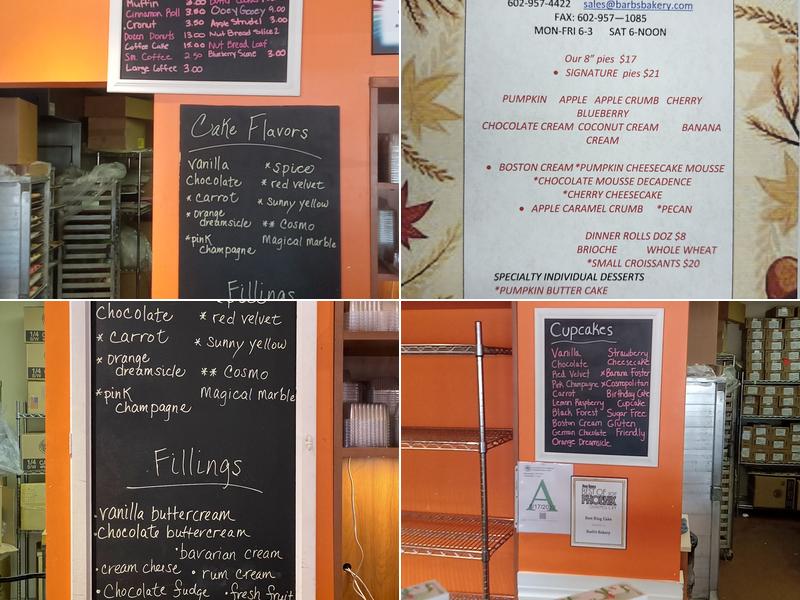 Muffin 3.00
Cinnamon Roll 3.50 Ooey Gooey 9.00
Cronut 3.50 Apple Strudel 3.00
Dozen Donuts 13.00 Nut Bread Slice 2
Coffee Cake 15.00 Nut Bread Loaf
Sm. Coffee 2.50 Blueberry Scone 3.00
Large Coffee 3.00
Cake Flavors
vanilla
Chocolate
* carrot
* orange
dreamsicle
* pink
champagne
* spice
* red velvet
* sunny yellow
** Cosmo
Magical Marble
Fillings
602-957-4422 sales@barbsbakery.com
FAX: 602-957—1085
MON-FRI 6-3 SAT 6-NOON
Our 8” pies $17
• SIGNATURE pies $21
PUMPKIN APPLE APPLE CRUMB CHERRY
BLUEBERRY
CHOCOLATE CREAM COCONUT CREAM BANANA
CREAM
• BOSTON CREAM *PUMPKIN CHEESECAKE MOUSSE
*CHOCOLATE MOUSSE DECADENCE
*CHERRY CHEESECAKE
• APPLE CARAMEL CRUMB *PECAN
DINNER ROLLS DOZ $8
BRIOCHE WHOLE WHEAT
*SMALL CROISSANTS $20
SPECIALTY INDIVIDUAL DESSERTS
*PUMPKIN BUTTER CAKE
Chocolate
* carrot
* orange
dreamsicle
* pink
champagne
* red velvet
* sunny yellow
** Cosmo
Magical Marble
Fillings
• vanilla buttercream
• Chocolate buttercream
• bavarian cream
• cream cheese • rum cream
• Chocolate fudge • fresh fruit
Cupcakes
Vanilla
Chocolate
Red Velvet
Pink Champagne
Carrot
Lemon Raspberry
Black Forest
Boston Cream
German Chocolate
Orange Dreamsicle
Strawberry
Cheesecake
* Banana Foster
* Cosmopolitan
Birthday Cake
Cupcake
Sugar Free
Gluten
Friendly
A
BEST OF
PHOENIX
Best King Cake
Barb's Bakery